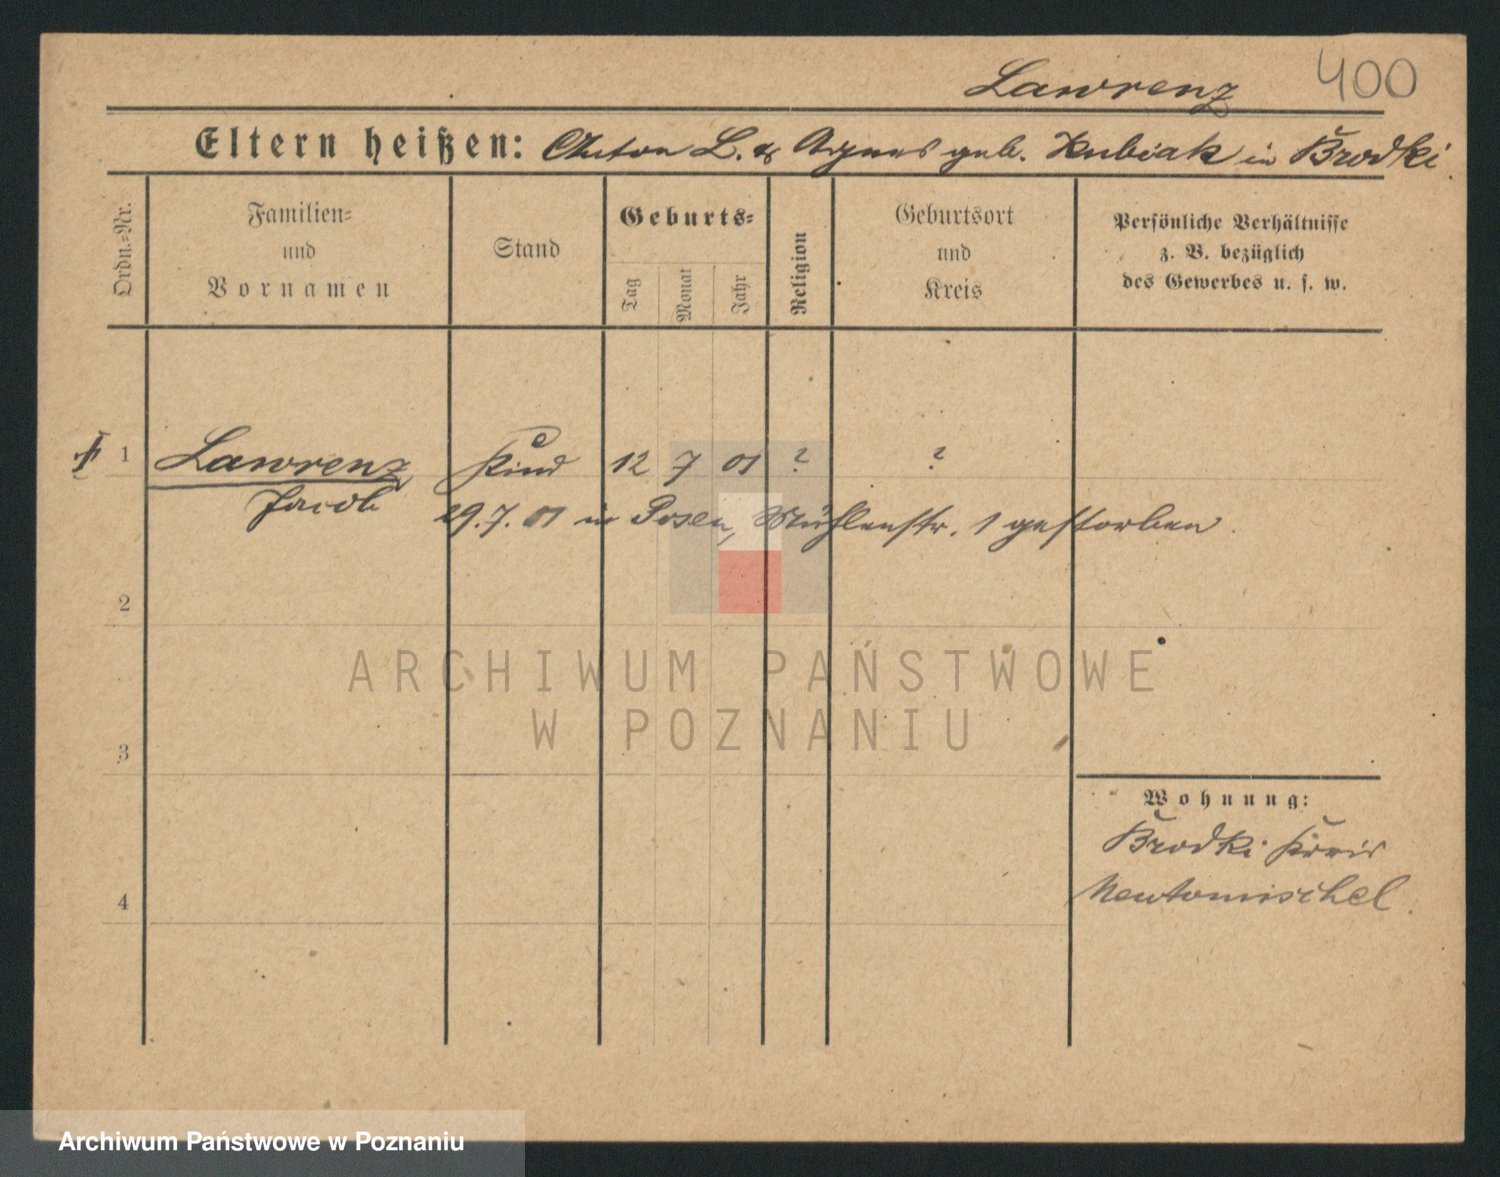 Lawrenz 400
Eltern heißen: Anton L. & Agnes geb. Kubiak in Brodki.
Ordn.=Nr.
Familien=
und
Vornamen
Stand
Geburts=
Tag
Monat
Jahr
Religion
Geburtsort
und
Kreis
Persönliche Verhältnisse
z. B. bezüglich
des Gewerbes u. s. w.
1 Lawrenz Kind 12 7 01 ? ?
Jacob 29.7.01 in Posen, Mühlenstr. 1 gestorben.
2
ARCHIWUM PAŃSTWOWE
W POZNANIU
3
Wohnung:
Brodki Kreis
Neutomischel.
4
Archiwum Państwowe w Poznaniu